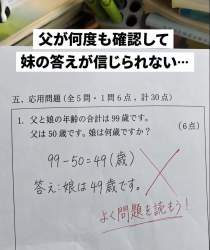 父が何度も確認して
妹の答えが信じられない…
五、応用問題(全5問・1問6点、計30点)
1. 父と娘の年齢の合計は99歳です。
父は50歳です。娘は何歳ですか?
(6点)
99-50=49(歳)
答え:娘は49歳です。
よく問題を読もう!